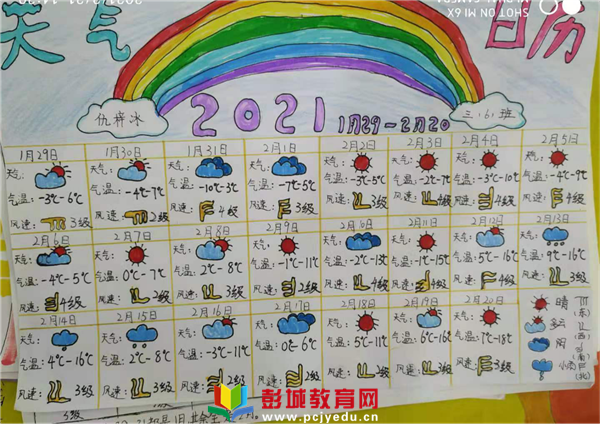 天气
日历
SHOT ON MI 6X
仇梓冰
三·(6)班
2021 1月29~2月20
1月29日 1月30日 1月31日 2月1日 2月2日 2月3日 2月4日 2月5日
天气: 天气: 天气: 天气: 天气: 天气: 天气: 天气:
气温:-3℃-6℃ 气温:-4℃-7℃ 气温:-10℃-3℃ 气温:-7℃-5℃ 气温:-3℃-5℃ 气温:-2℃-7℃ 气温:-3℃-10℃ 气温:-4℃-9℃
风速: 3级 风速: 4级 风速: 4级 风速: 3级 风速: 3级 风速: 3级 风速: 4级 风速: 4级
2月6日 2月7日 2月8日 2月9日 2月10日 2月11日 2月12日 2月13日
天气: 天气: 天气: 天气: 天气: 天气: 天气: 天气:
气温:-4℃-5℃ 气温:0℃-7℃ 气温:2℃-8℃ 气温:-1℃-11℃ 气温:-2℃-13℃ 气温:-1℃-15℃ 气温:5℃-16℃ 气温:9℃-16℃
风速: 4级 风速: 2级 风速: 3级 风速: 2级 风速: 2级 风速: 4级 风速: 2级 风速: 4级
2月14日 2月15日 2月16日 2月17日 2月18日 2月19日 2月20日
天气: 天气: 天气: 天气: 天气: 天气: 天气:
气温:4℃-16℃ 气温:2℃-8℃ 气温:-3℃-11℃ 气温:0℃-6℃ 气温:5℃-11℃ 气温:6℃-16℃ 气温:7℃-18℃
风速: 3级 风速: 3级 风速: 2级 风速: 2级 风速: 2级 风速: 3级
晴 (东)
多云 (西)
阴 (南)
小雨 (北)
彭城教育网
www.pcjyedu.cn
3级